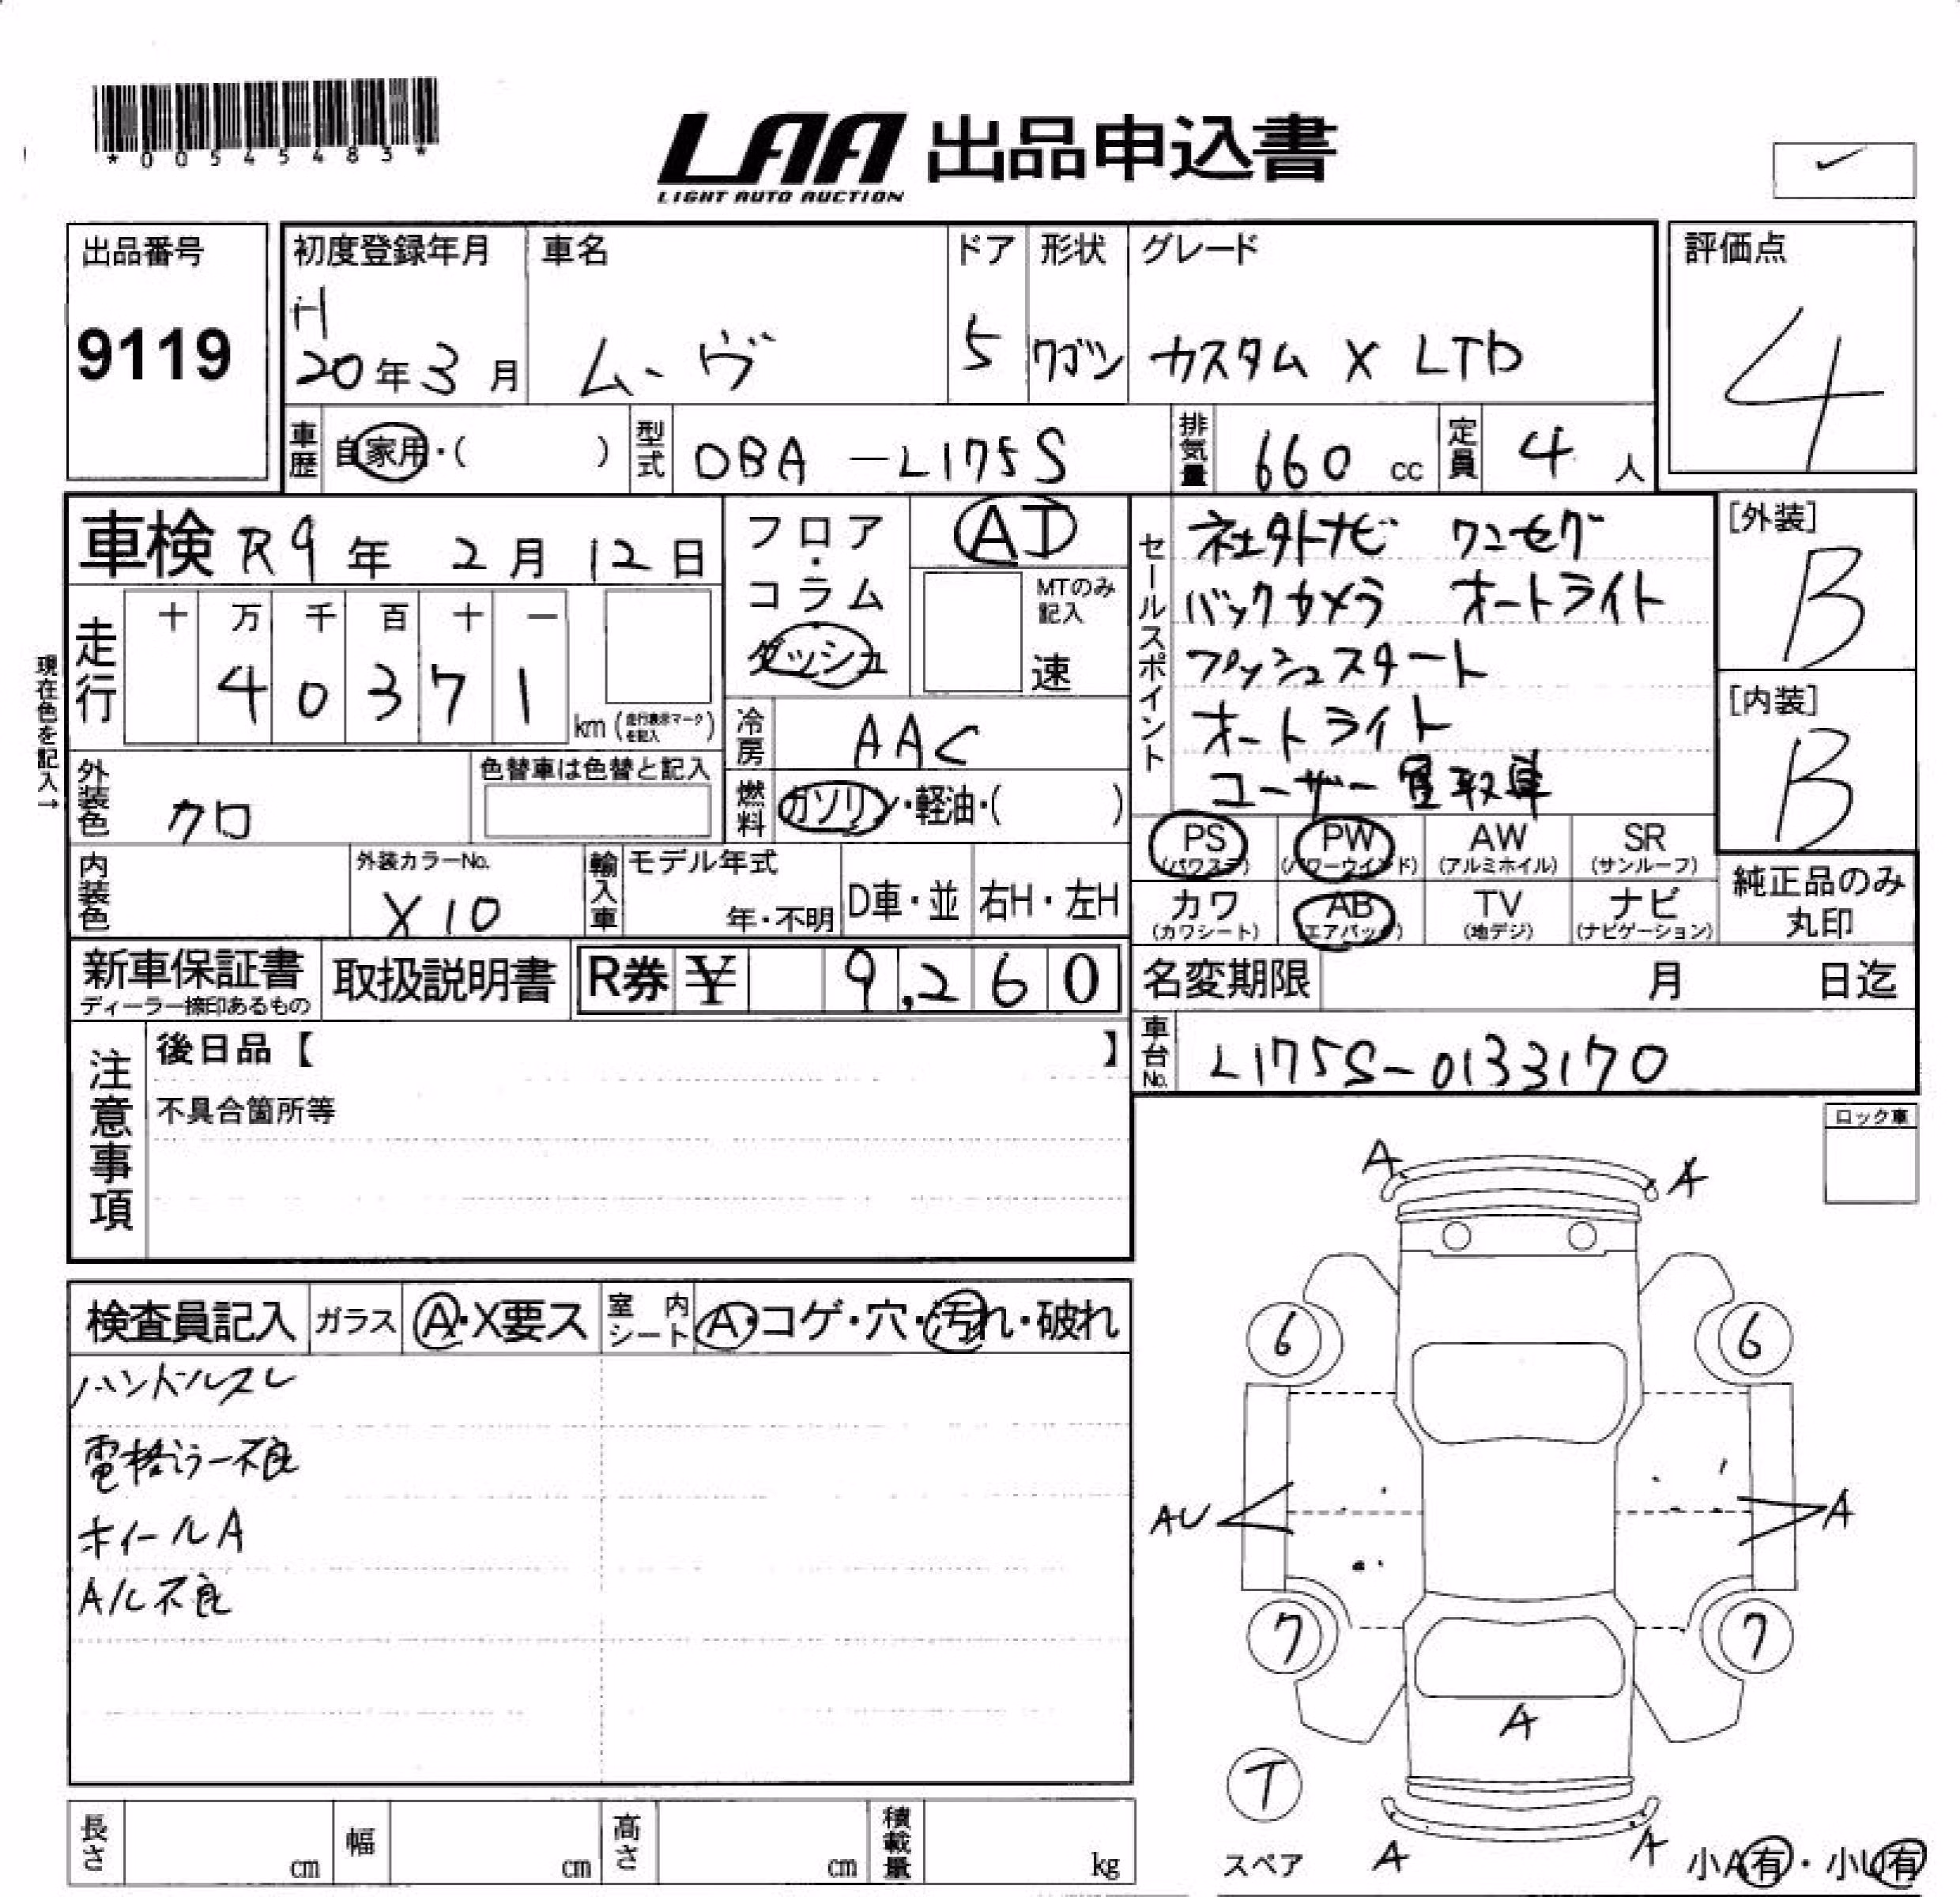 *00545483*
LAA 出品申込書
LIGHT AUTO AUCTION
✓
出品番号
9119
初度登録年月
H
20年3月
車名
ムーヴ
ドア
5
形状
ワゴン
グレード
カスタム X LTD
評価点
4
車歴
自家用・( )
型式
DBA-L175S
排気量
660 cc
定員
4 人
車検 R9年 2月 12日
フロア
・
コラム
ダッシュ
AT
MTのみ
記入
速
セールスポイント
社外ナビ ワンセグ
バックカメラ オートライト
プッシュスタート
オートライト
ユーザー買取車
[外装]
B
[内装]
B
現在色を記入→
走行
十 万 千 百 十 一
4 0 3 7 1
km (走行表示マークを記入)
冷房
AAC
外装色
クロ
色替車は色替と記入
燃料
ガソリン・軽油・( )
PS
(パワステ)
PW
(パワーウインド)
AW
(アルミホイル)
SR
(サンルーフ)
カワ
(カワシート)
AB
(エアバッグ)
TV
(地デジ)
ナビ
(ナビゲーション)
純正品のみ
丸印
内装色
外装カラーNo.
X10
輸入車
モデル年式
年・不明
D車・並
右H・左H
新車保証書
ディーラー捺印あるもの
取扱説明書
R券 ¥ 9,260
名変期限 月 日迄
車台No.
L175S-0133170
注意事項
後日品【 】
不具合箇所等
ロック車
検査員記入
ガラス
A・X要ス
室内
シート
A・コゲ・穴・汚れ・破れ
ハンドルスレ
電格ミラー不良
ホイールA
A/C不良
A
A
6
6
AU
A
7
7
A
T
スペア
A
A
小A有・小U有
長さ
cm
幅
cm
高さ
cm
積載量
kg